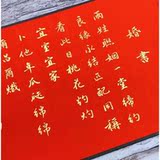 婚書
兩姓聯姻一堂締約
良緣永結匹配同稱
看此日桃花灼灼
宜室宜家
卜他年瓜瓞綿綿
昌爾熾